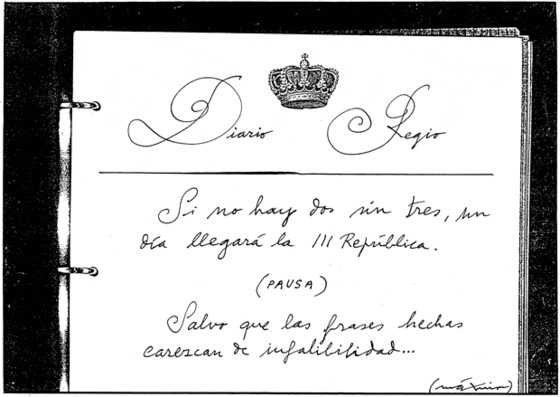 Diario Regio
Si no hay dos sin tres, un
día llegará la III República.
(PAUSA)
Salvo que las frases hechas
carezcan de infalibilidad...
(máximo)